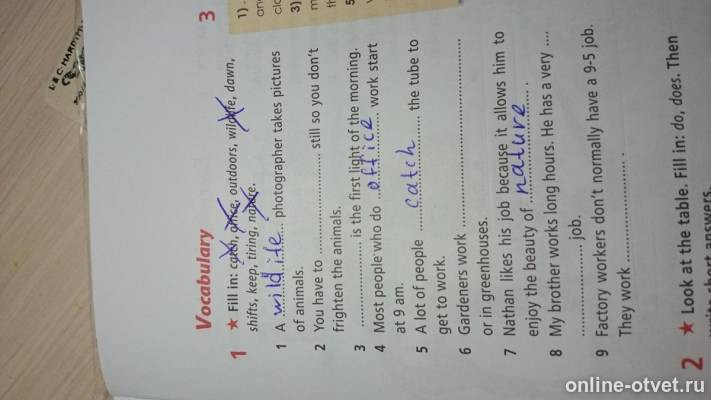 Vocabulary
1 ★ Fill in: catch, office, outdoors, wildlife, dawn,
shifts, keep, tiring, nature.
1 A wildlife photographer takes pictures
of animals.
2 You have to .................... still so you don't
frighten the animals.
3 .................... is the first light of the morning.
4 Most people who do office work start
at 9 am.
5 A lot of people catch the tube to
get to work.
6 Gardeners work ....................
or in greenhouses.
7 Nathan likes his job because it allows him to
enjoy the beauty of nature.
8 My brother works long hours. He has a very ....
.................... job.
9 Factory workers don't normally have a 9-5 job.
They work .................... .
2 ★ Look at the table. Fill in: do, does. Then
write short answers.
3
1)
3)
5
online-otvet.ru